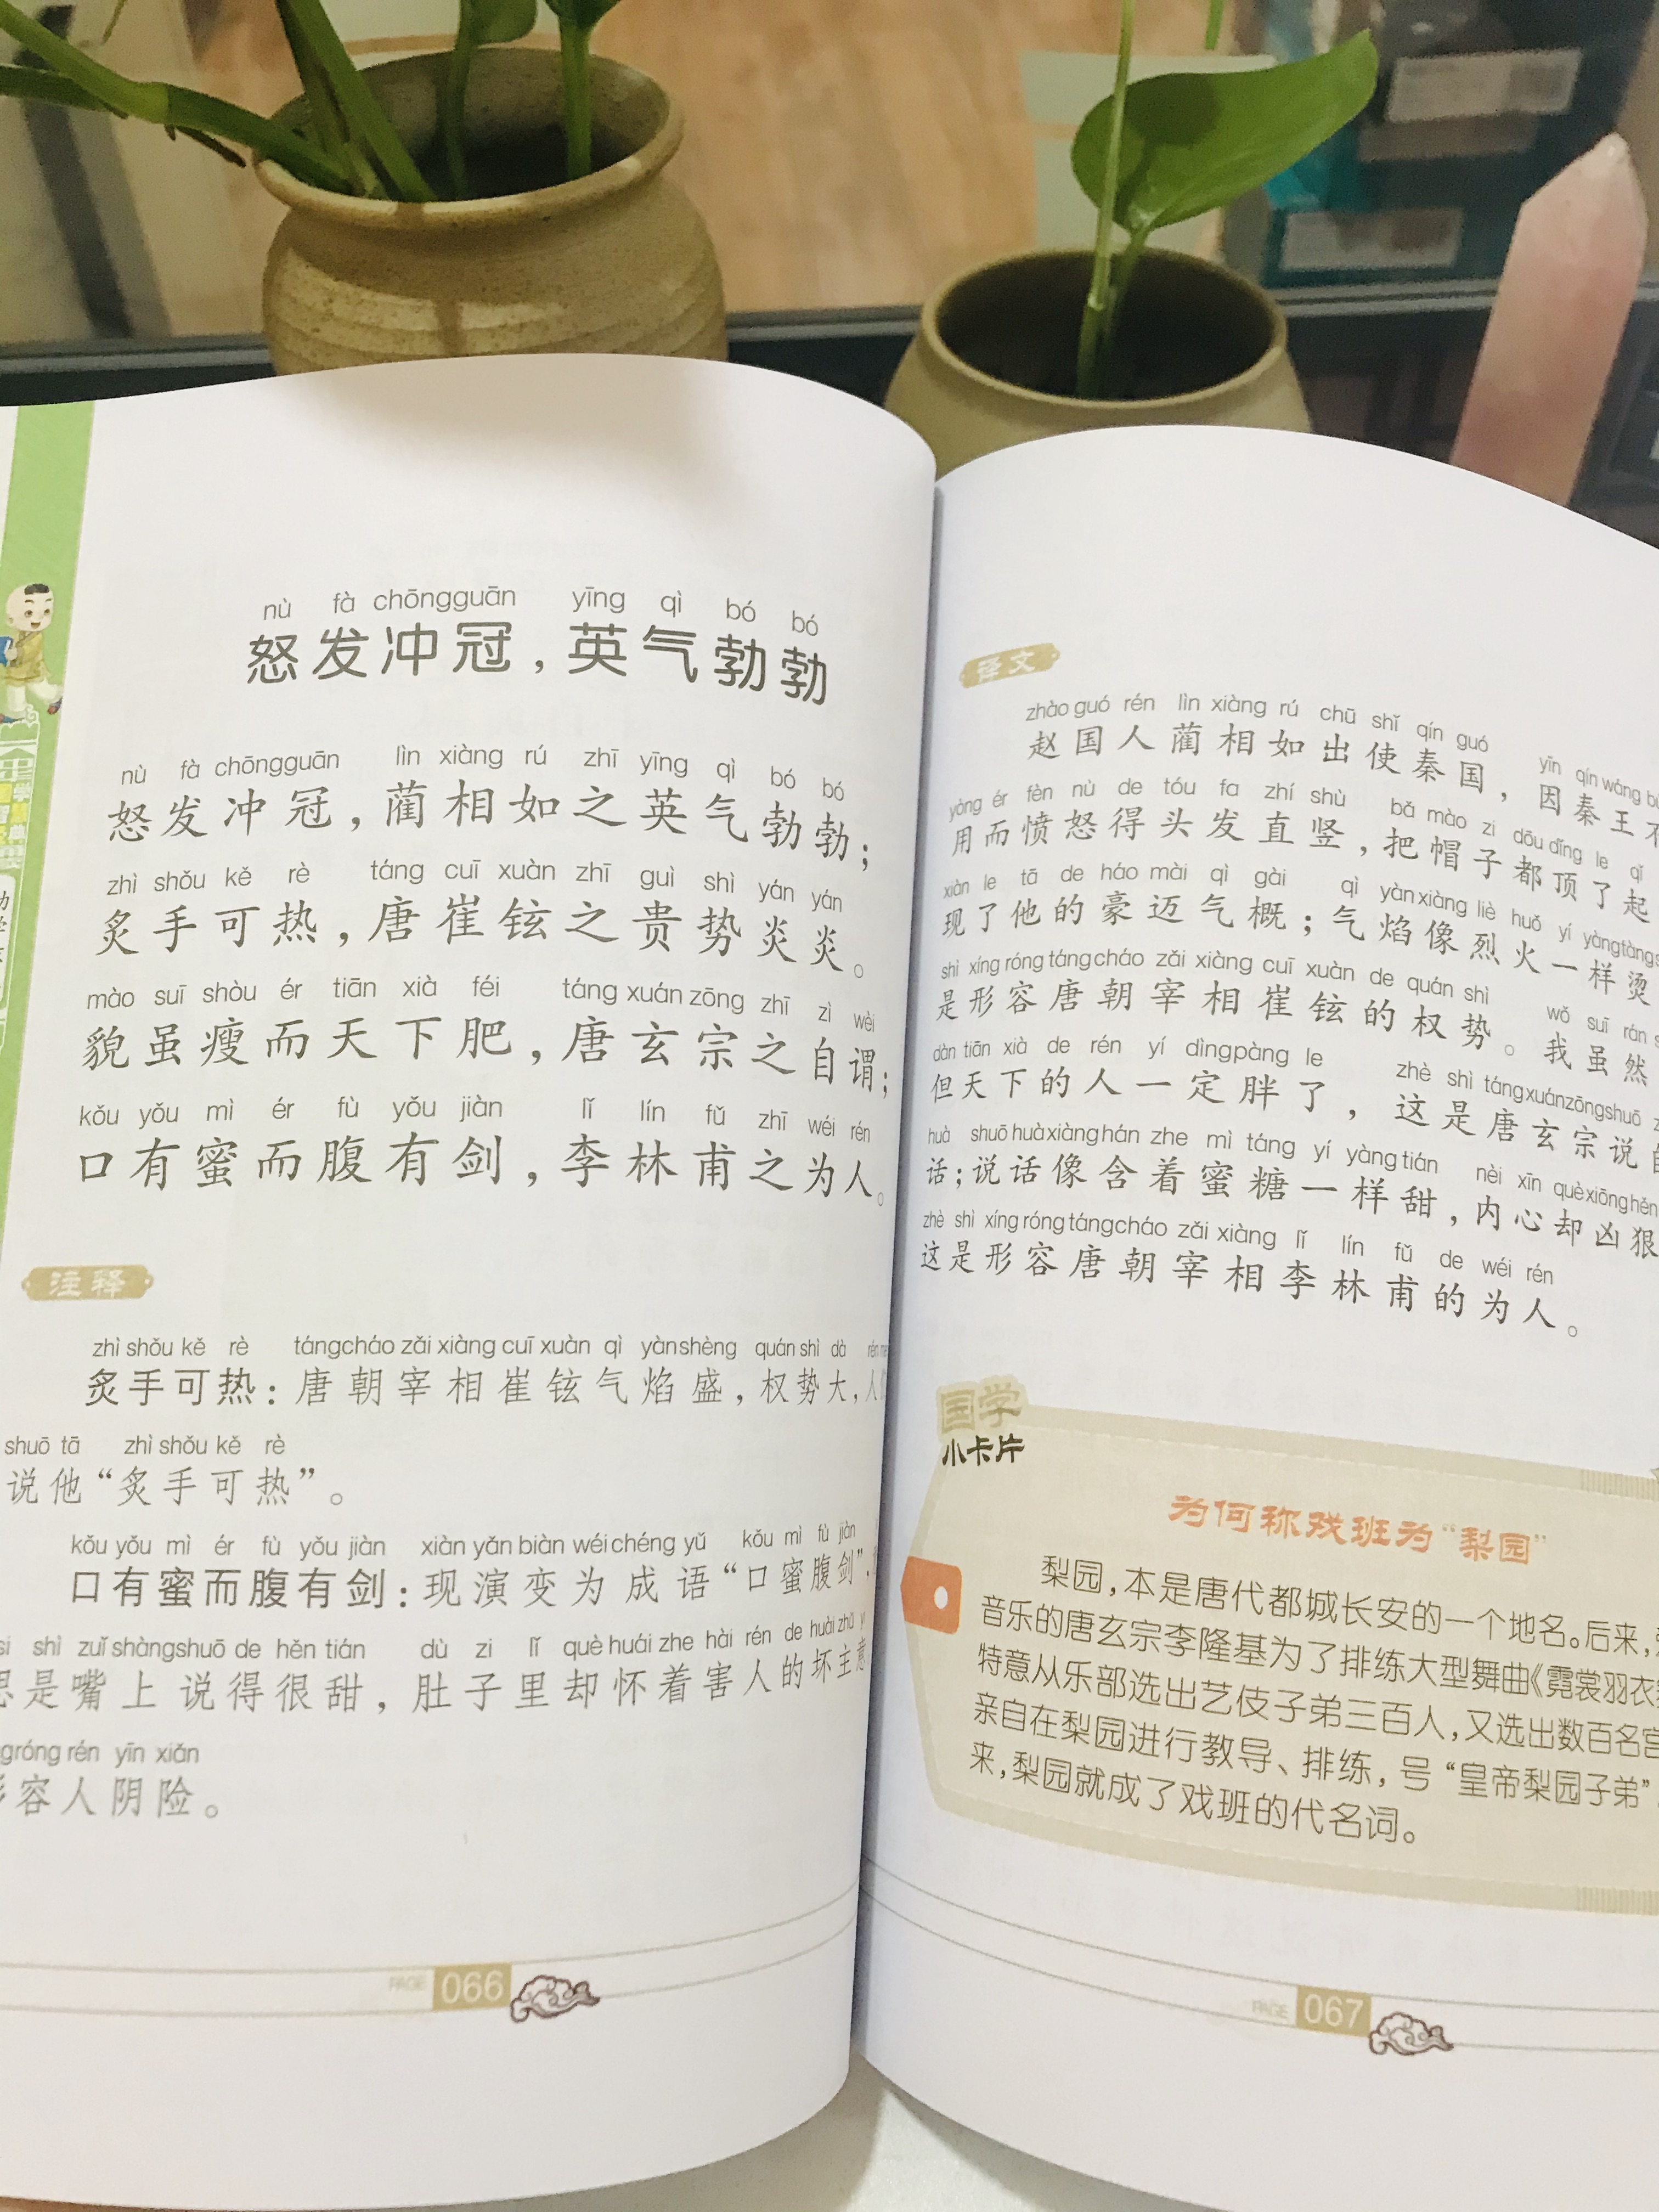 nù fà chōngguān yīng qì bó bó
怒发冲冠，英气勃勃
nù fà chōngguān lìn xiàng rú zhī yīng qì bó bó
怒发冲冠，蔺相如之英气勃勃；
zhì shǒu kě rè táng cuī xuàn zhī guì shì yán yán
炙手可热，唐崔铉之贵势炎炎。
mào suī shòu ér tiān xià féi táng xuán zōng zhī zì wèi
貌虽瘦而天下肥，唐玄宗之自谓；
kǒu yǒu mì ér fù yǒu jiàn lǐ lín fǔ zhī wéi rén
口有蜜而腹有剑，李林甫之为人。
注释
zhì shǒu kě rè tángcháo zǎi xiàng cuī xuàn qì yànshèng quán shì dà
炙手可热：唐朝宰相崔铉气焰盛，权势大，人
shuō tā zhì shǒu kě rè
说他“炙手可热”。
kǒu yǒu mì ér fù yǒu jiàn xiàn yǎn biàn wéi chéng yǔ kǒu mì fù jiàn
口有蜜而腹有剑：现演变为成语“口蜜腹剑”
si shì zuǐ shàngshuō de hěn tián dù zi lǐ què huái zhe hài rén de huài zhǔ yi
思是嘴上说得很甜，肚子里却怀着害人的坏主意
róng rén yīn xiǎn
容人阴险。
PAGE 066
译文
zhào guó rén lìn xiàng rú chū shǐ qín guó yīn qín wáng
赵国人蔺相如出使秦国，因秦王不
yòng ér fèn nù de tóu fa zhí shù bǎ mào zi dōu dǐng le qǐ
用而愤怒得头发直竖，把帽子都顶了起
xiàn le tā de háo mài qì gài qì yàn xiàng liè huǒ yí yàngtàng
现了他的豪迈气概；气焰像烈火一样烫
shì xíng róng tángcháo zǎi xiàng cuī xuàn de quán shì wǒ suī rán
是形容唐朝宰相崔铉的权势。我虽然
dàn tiān xià de rén yí dìngpàng le zhè shì tángxuánzōngshuō
但天下的人一定胖了，这是唐玄宗说的
huà shuō huà xiàng hán zhe mì táng yí yàng tián nèi xīn què xiōng hěn
话；说话像含着蜜糖一样甜，内心却凶狠
zhè shì xíng róng tángcháo zǎi xiàng lǐ lín fǔ de wéi rén
这是形容唐朝宰相李林甫的为人。
国学
小卡片
为何称戏班为“梨园”
梨园，本是唐代都城长安的一个地名。后来，
音乐的唐玄宗李隆基为了排练大型舞曲《霓裳羽衣
特意从乐部选出艺伎子弟三百人，又选出数百名宫
亲自在梨园进行教导、排练，号“皇帝梨园子弟”
来，梨园就成了戏班的代名词。
PAGE 067